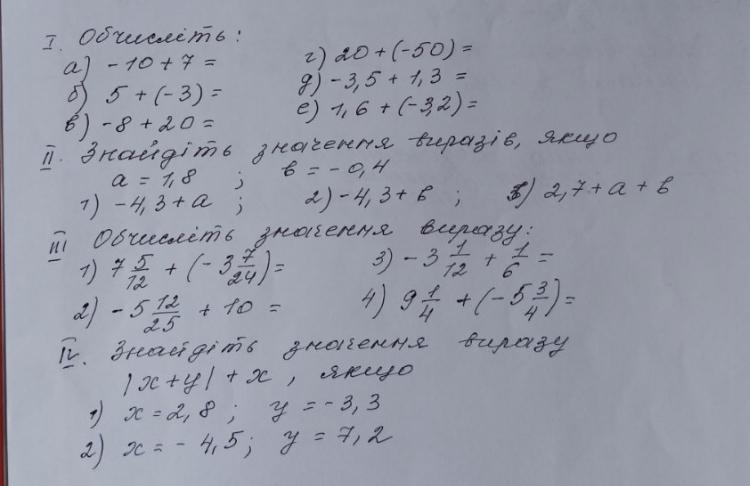 I. Обчисліть:
а) -10+7=   г) 20+(-50)=
б) 5+(-3)=   д) -3,5+1,3=
в) -8+20=   е) 1,6+(-3,2)=
II. Знайдіть значення виразів, якщо
a=1,8 ; в=-0,4
1) -4,3+a ; 2) -4,3+в ; 3) 2,7+a+в
III Обчисліть значення виразу:
1) 7 5/12 + (-3 7/24)=   3) -3 1/12 + 1/6 =
2) -5 12/25 + 10 =   4) 9 1/4 + (-5 3/4)=
IV. Знайдіть значення виразу
|x+y|+x , якщо
1) x=2,8 ; y=-3,3
2) x=-4,5; y=7,2